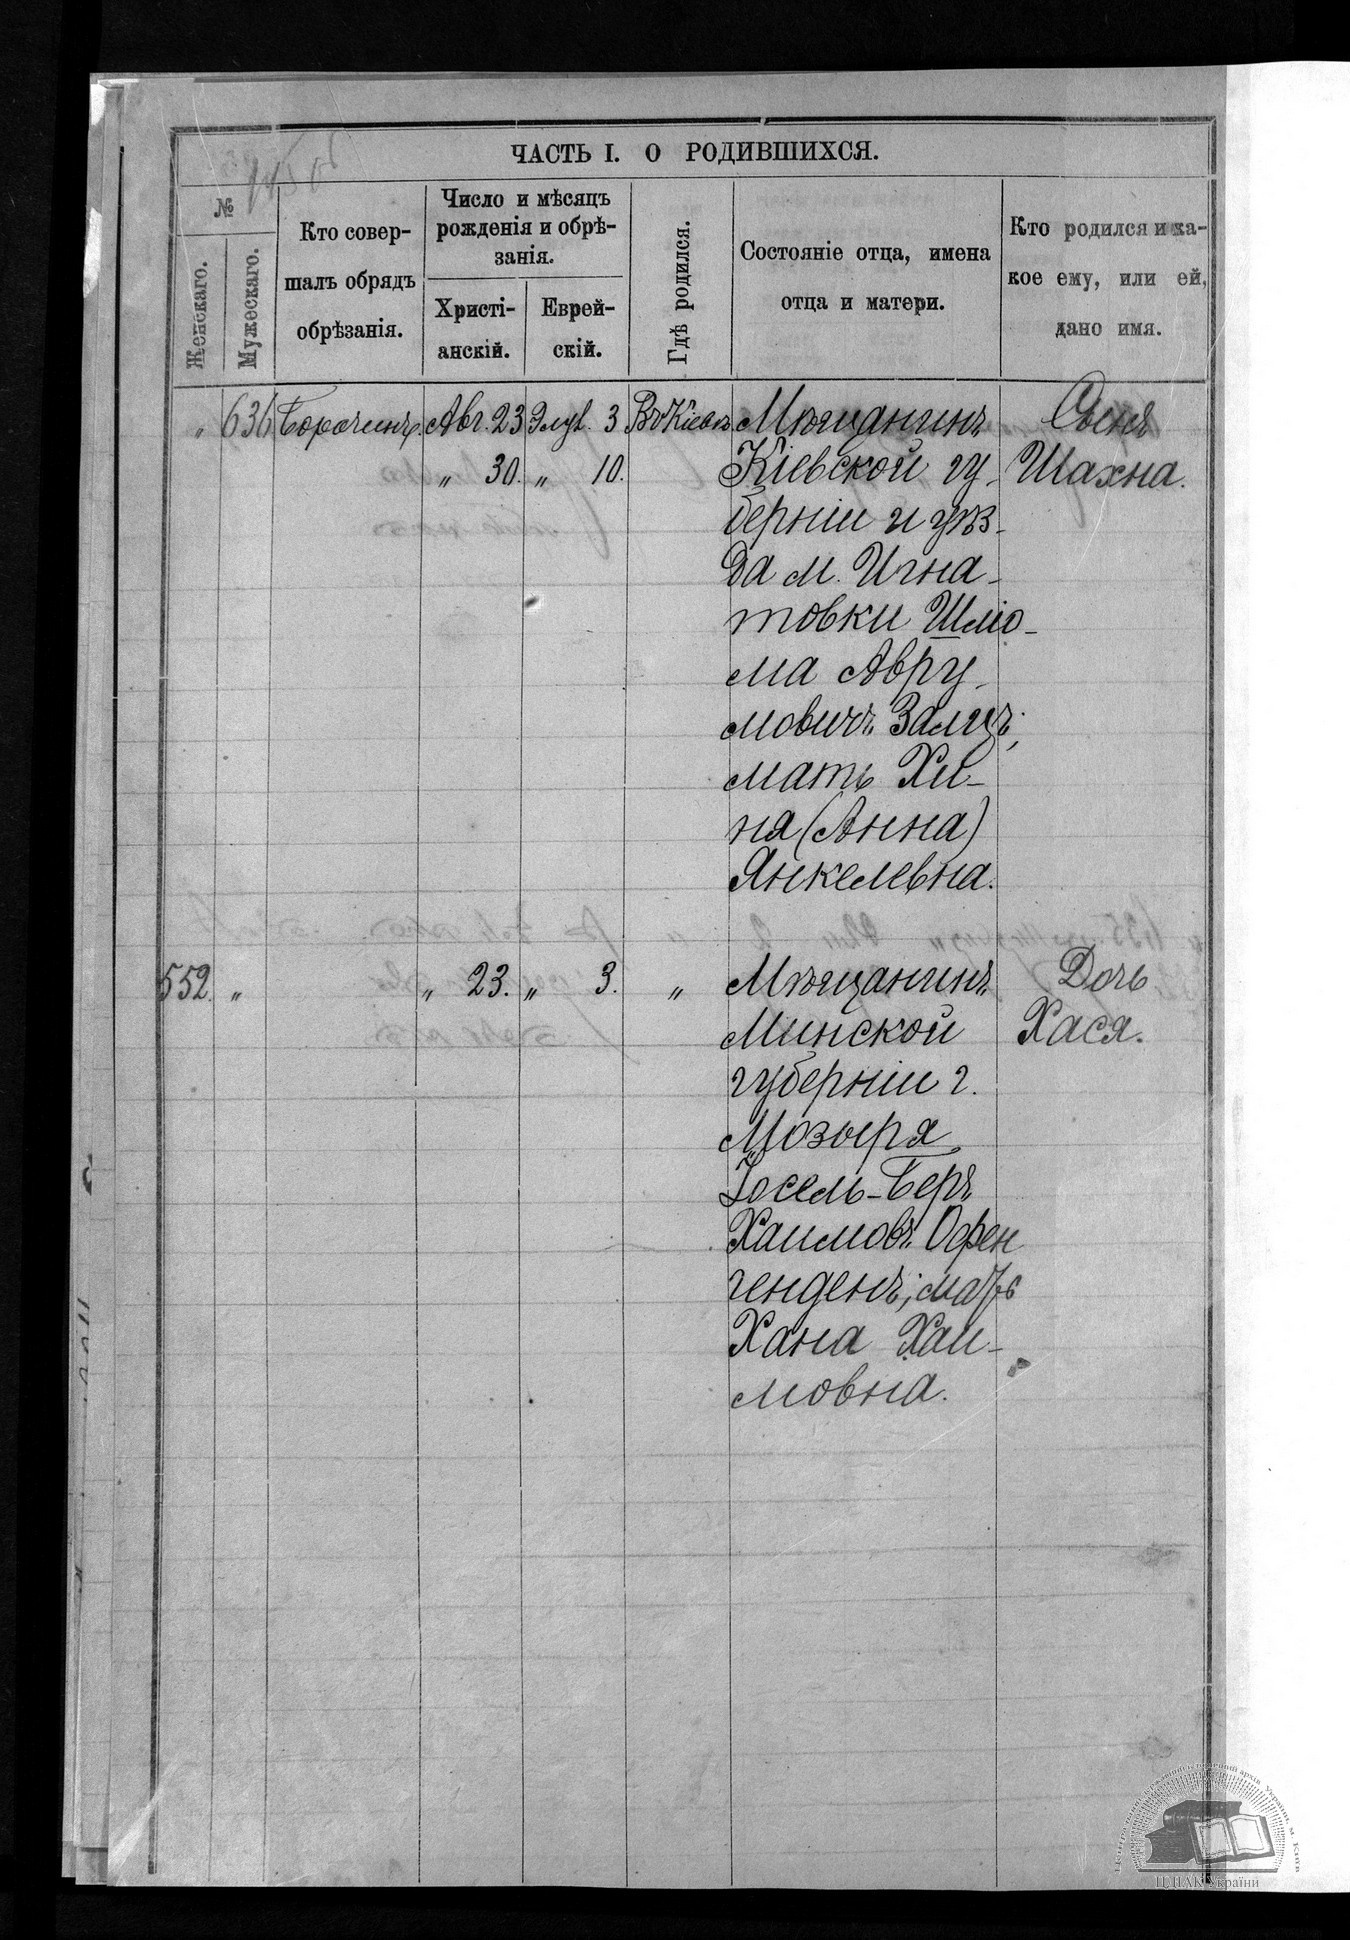 ЧАСТЬ I. О РОДИВШИХСЯ.
№
Женскаго.
Мужескаго.
Кто совер-
шалъ обрядъ
обрѣзанія.
Число и мѣсяцъ
рожденія и обрѣ-
занія.
Христі-
анскій.
Еврей-
скій.
Гдѣ родился.
Состояніе отца, имена
отца и матери.
Кто родился и ка-
кое ему, или ей,
дано имя.
„ 636 Авг. 23 Элул. 3 Въ Кіевѣ Мѣщанинъ Сынъ
„ 30. „ 10. Кіевской гу- Шахна.
берніи и уѣз-
да м. Игна-
товки Шліо-
ма Авру-
мовичъ Залцъ;
мать Хи-
ня (Анна)
Янкелевна.
552. „ „ 23. „ 3. „ Мѣщанинъ Дочь
Минской Хася.
губерніи г.
Мозыря
Іосель-Беръ
Хаимовъ Офен
генденъ; мать
Хана Хаи-
мовна.
ЦДІАК України